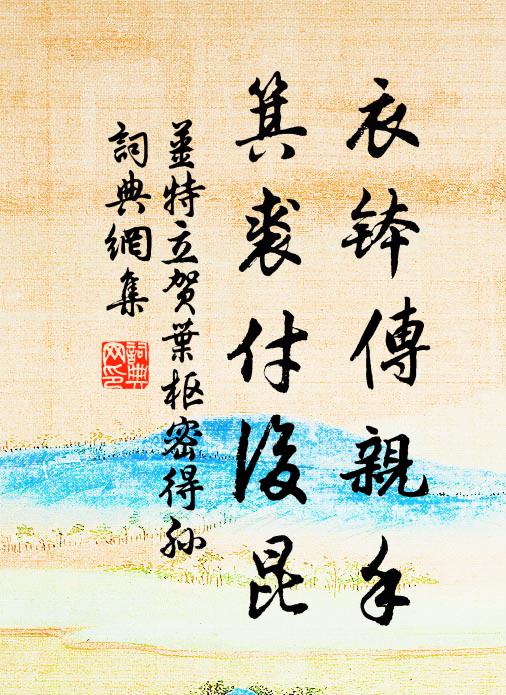 衣鉢傳親手
箕裘付後昆
姜特立賀葉樞密得孫
詞典網集
詞典網印